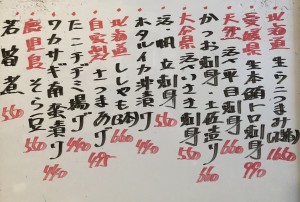 北海道 生ウニつまみ(木箱) 1660
愛媛県 生本鮪トロ刺身 990
天然 活〆平目刺身 660
かつお刺身 土佐造り 560
大分県 活〆いさき刺身 560
活 帆立刺身 560
北海道 ししゃも(3本) 660
ホタルイカ沖漬け 440
自家製 さつまあげ 495
たこチヂミ揚げ 440
ワカサギ南蛮漬け 440
鹿児島 そら豆 550
若筍煮 550